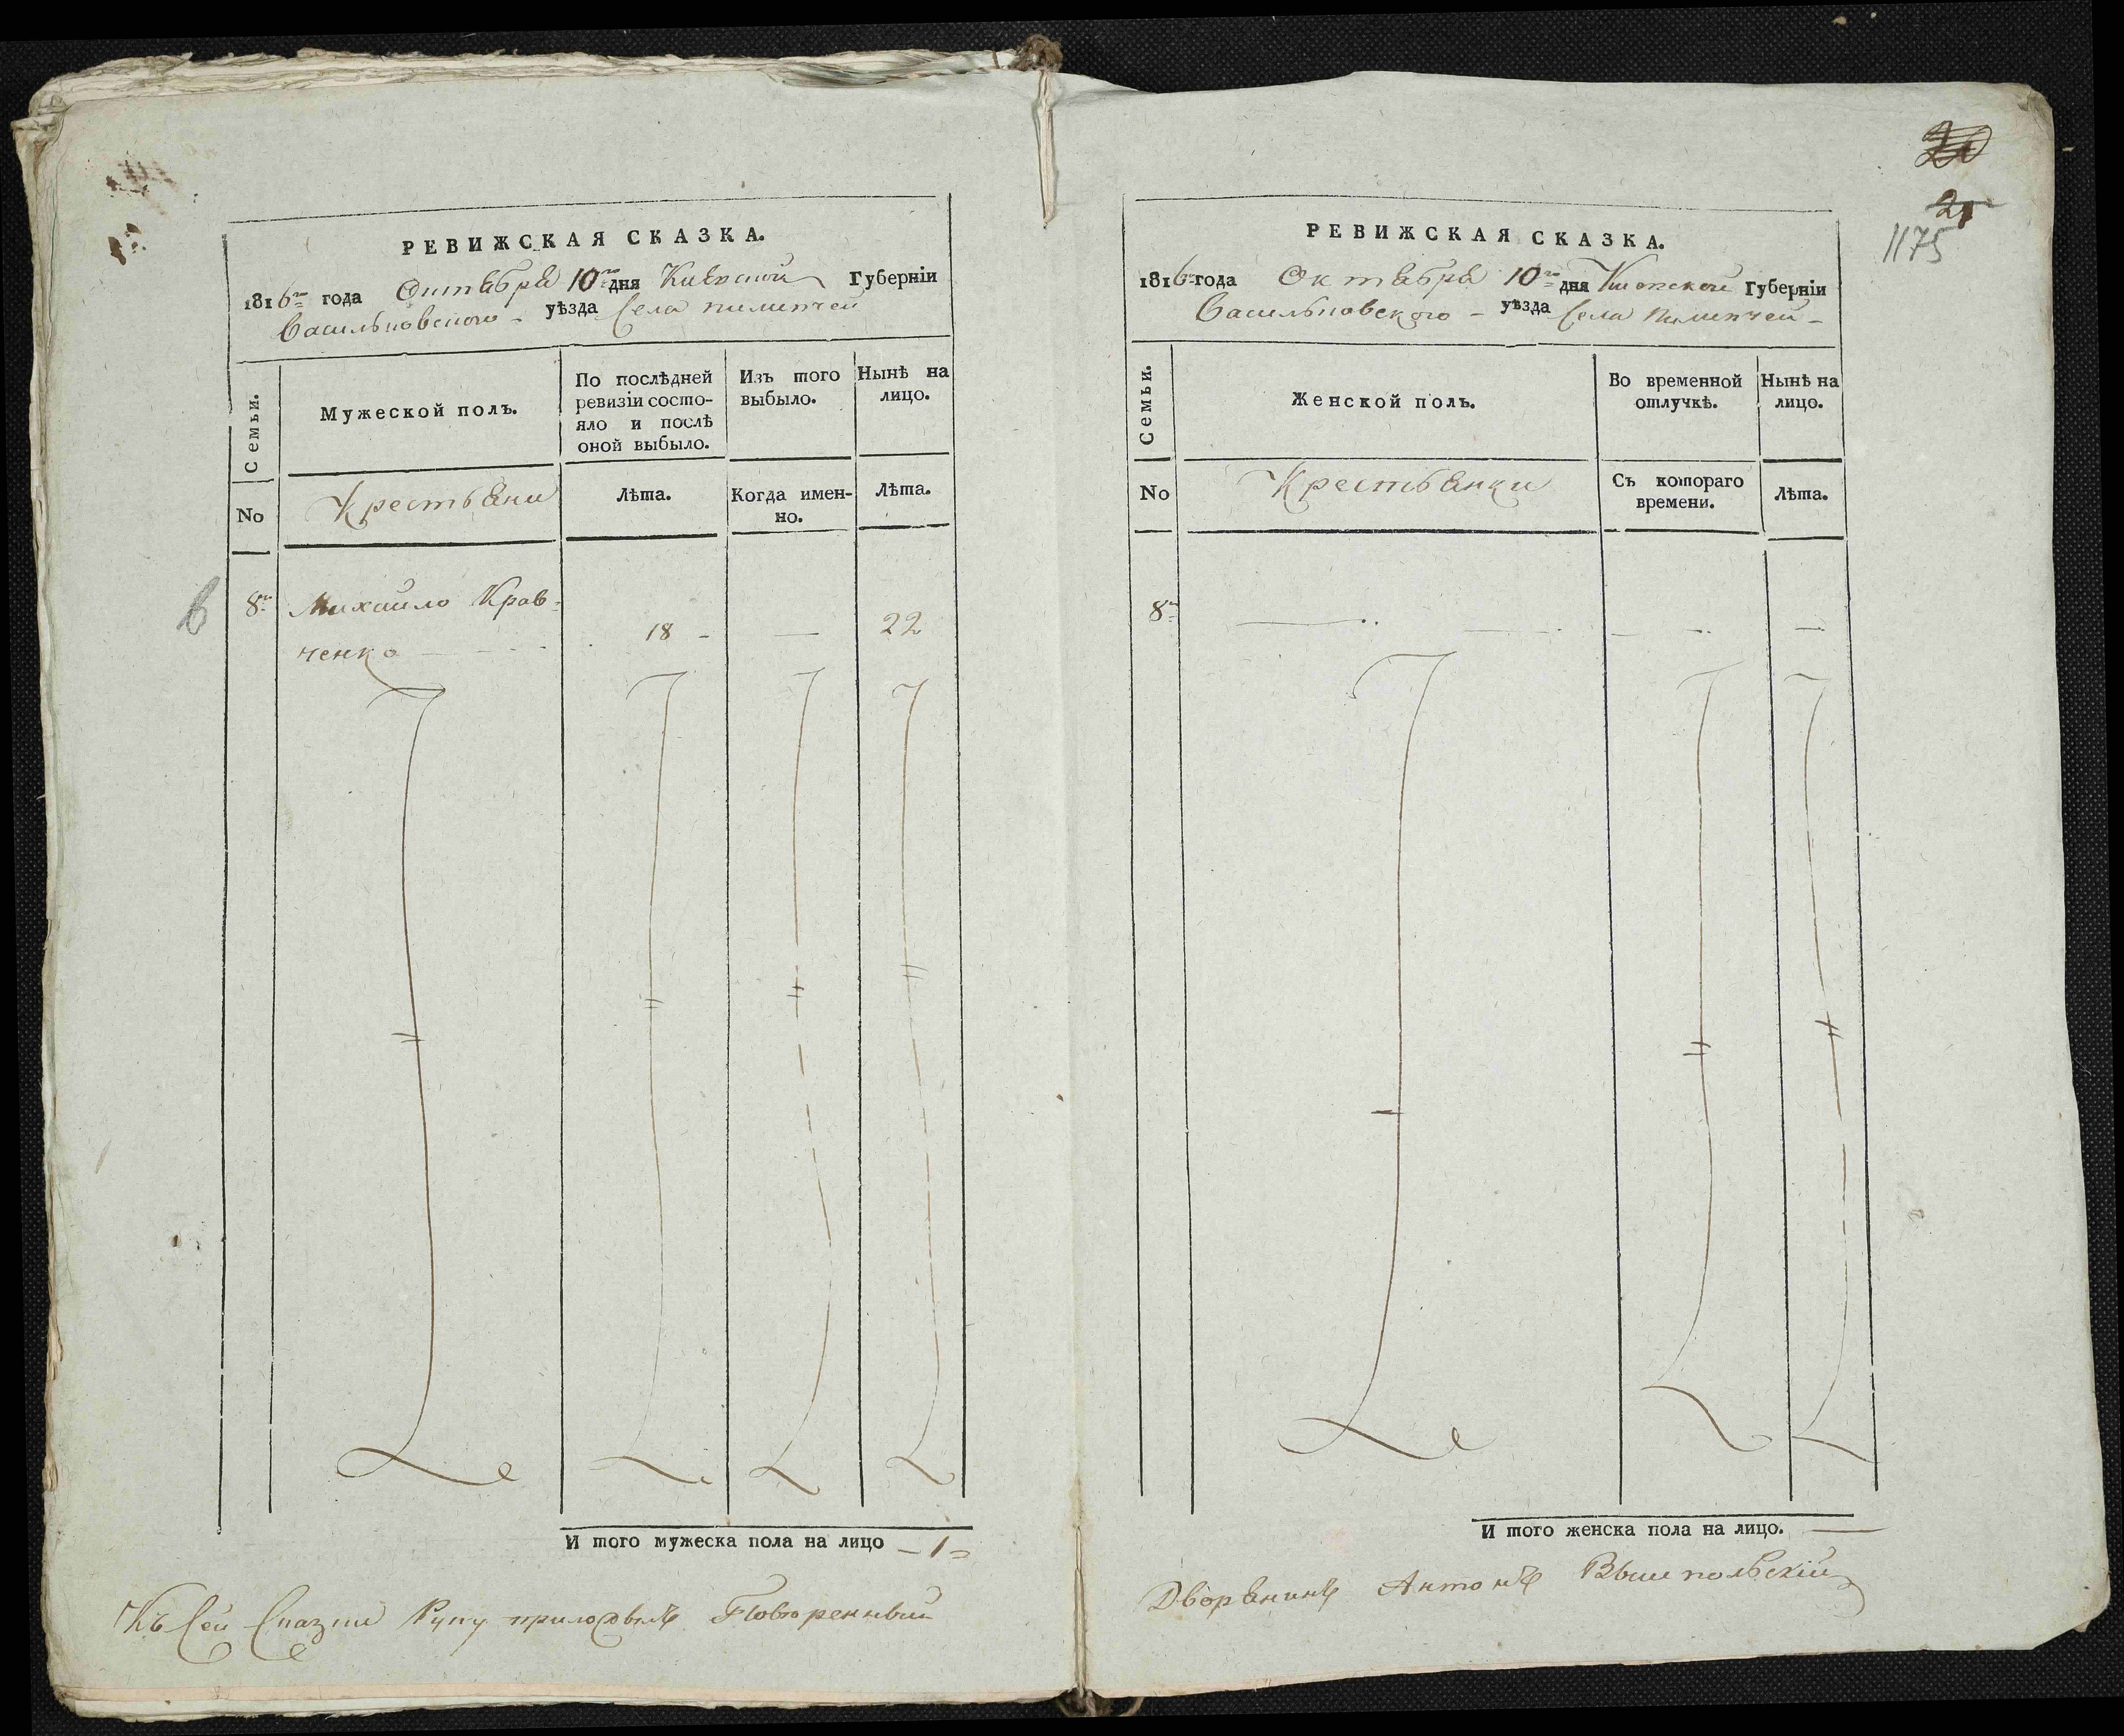 РЕВИЖСКАЯ СКАЗКА.
1816го года Октября 10го дня Киевской Губерніи
Васильковского - уѣзда Села пилипчей
Семьи.
Мужеской полъ.
По послѣдней ревизіи состояло и послѣ оной выбыло.
Изъ того выбыло.
Нынѣ на лицо.
No
Крестьяни
Лѣта.
Когда именно.
Лѣта.
8й Михайло Крав=
ченко 18 - — 22
И того мужеска пола на лицо — 1 =
Къ Сей Сказки Руку приложылъ Поверенный
1175
РЕВИЖСКАЯ СКАЗКА.
1816го года Октября 10го дня Киевской Губерніи
Васильковского - уѣзда Села Пилипчей -
Семьи.
Женской полъ.
Во временной отлучкѣ.
Нынѣ на лицо.
No
Крестьянки
Съ котораго времени.
Лѣта.
8й
И того женска пола на лицо. —
Дворянинъ Антонъ Вышпольскій